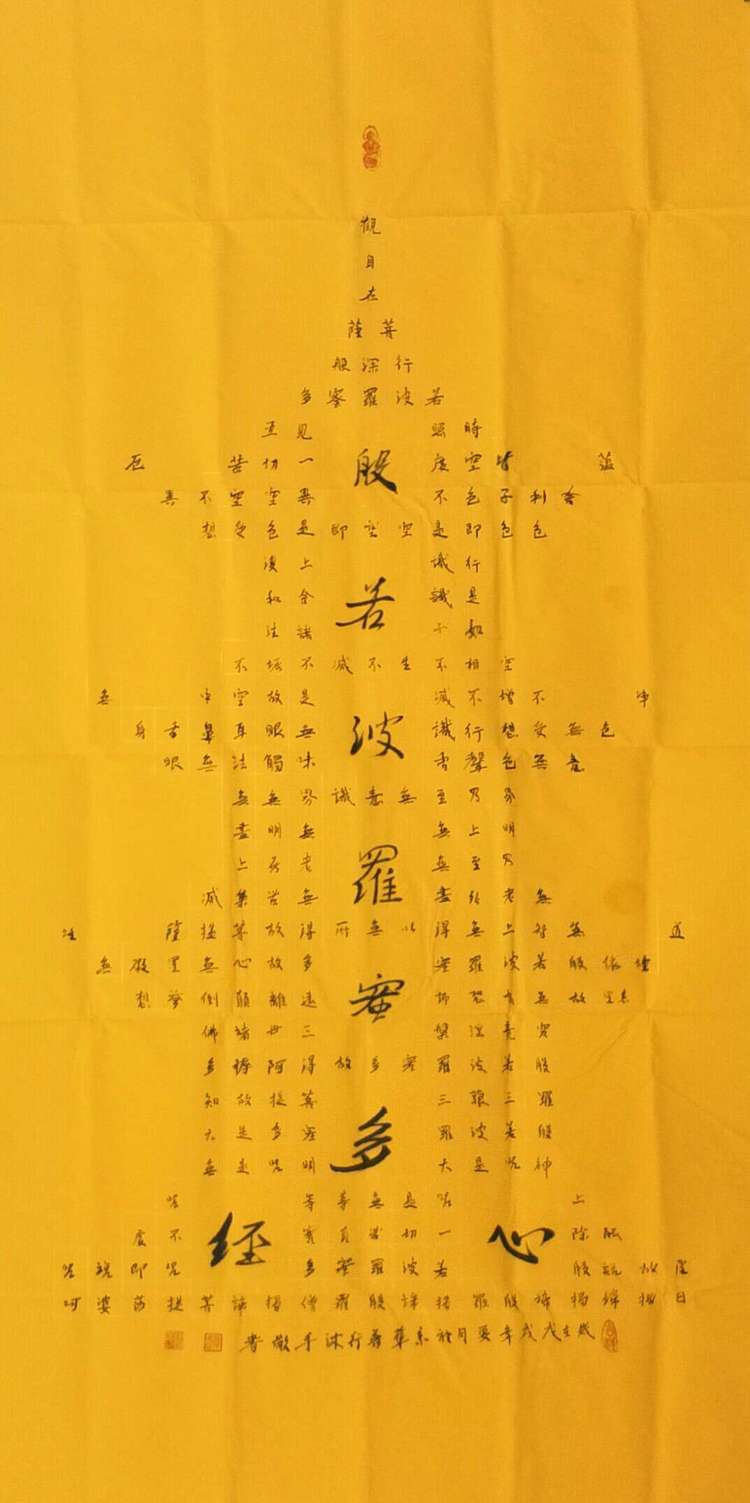 觀
自
在
菩薩
行深般
若波羅蜜多
時照見五
蘊皆空度一切苦厄
舍利子色不異空空不異
色色即是空空即是色受想
行識亦復
空相不生不滅不垢不
淨不增不減是故空中無
色無受想行識無眼耳鼻舌身
意無色聲香味觸法無眼
界乃至無意識界無無
明亦無無明盡
乃至無老死亦
無老死盡無苦集滅
道無智亦無得以無所得故菩提薩埵
依般若波羅蜜多故心無罣礙無
罣礙故無有恐怖遠離顛倒夢想
究竟涅槃三世諸佛
般若波羅蜜多故得阿耨多
羅三藐三菩提故知
般若波羅蜜多是大
神咒是大明咒是無
上咒是無等等咒
能除一切苦真實不虛
故說般若波羅蜜多咒即說咒
曰揭諦揭諦般羅揭諦般羅僧揭諦菩提莎婆呵
般若波羅蜜多心經
歲在戊戌年夏月於京華善行沐手敬書